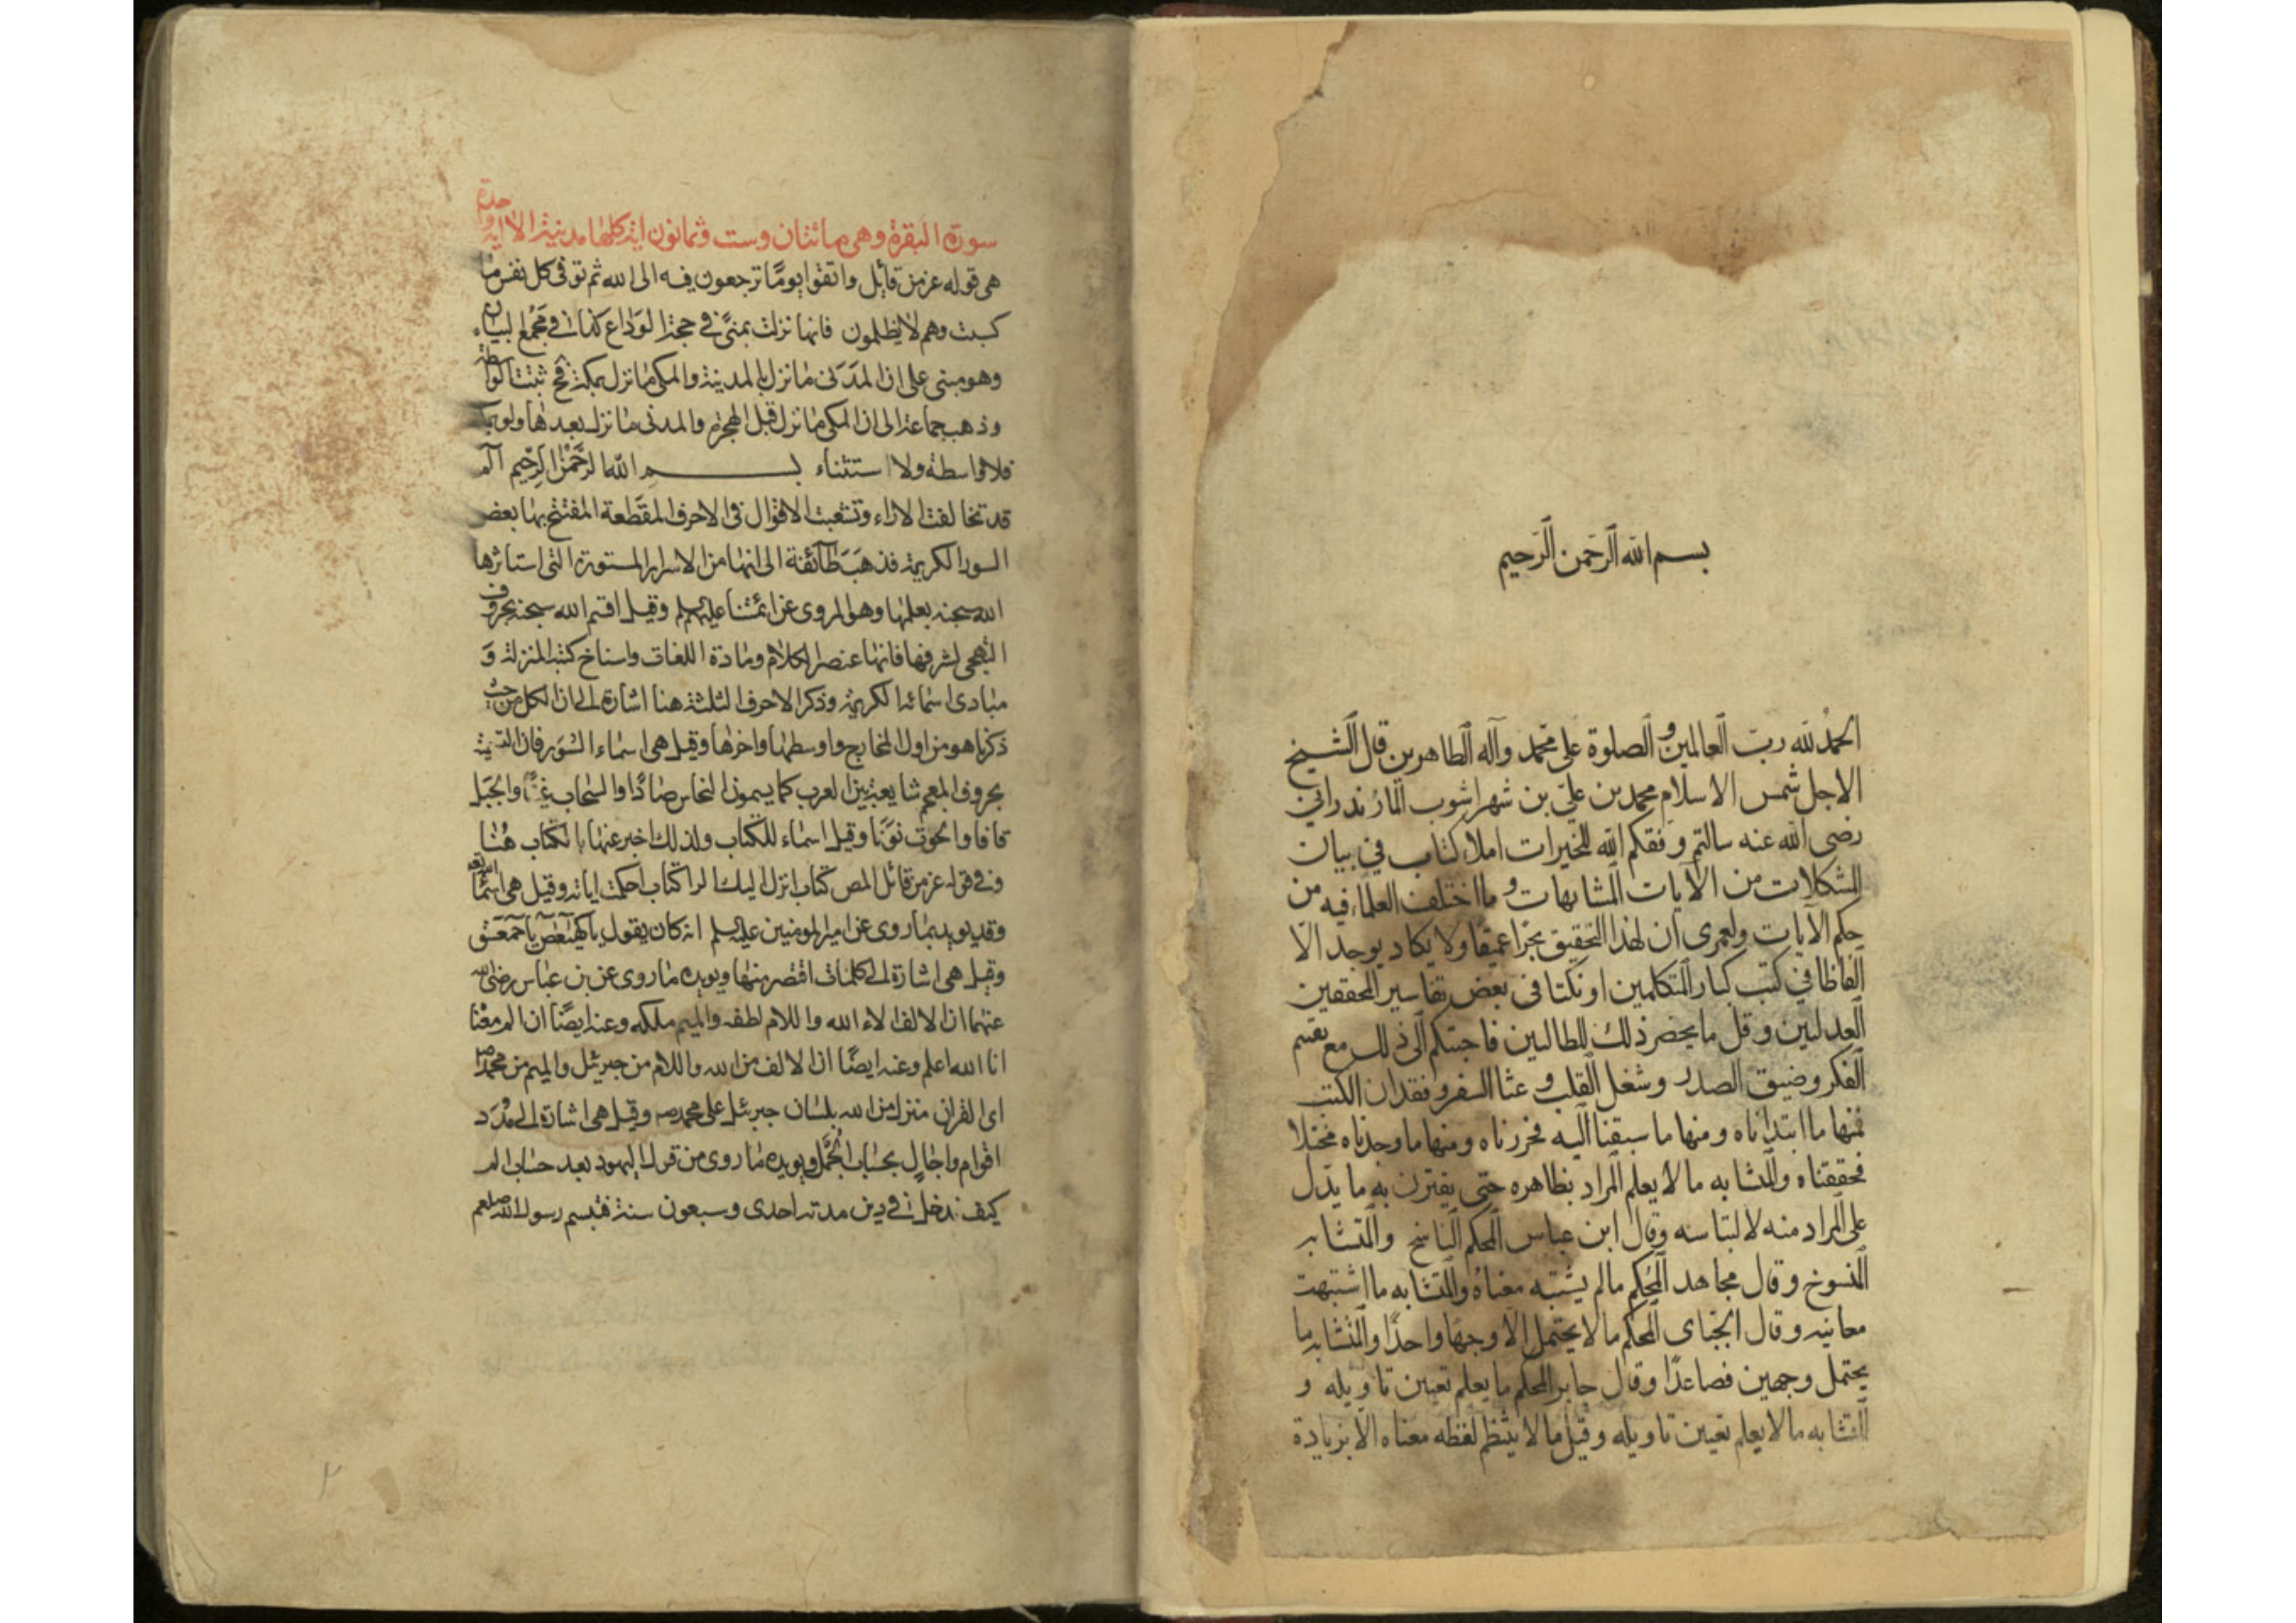 بسم الله الرحمن الرحيم
الحمد لله رب العالمين والصلوة على محمد وآله الطاهرين قال الشيخ
الاجل شمس الاسلام محمد بن علي بن شهراشوب المازندراني
رضى الله عنه سالتم وفقكم الله للخيرات املاء كتاب في بيان
المشكلات من الآيات المتشابهات و ما اختلف العلماء فيه من
حكم الآيات ولعمرى ان لهذا التحقيق بحرا عميقا ولا يكاد يوجد الا
الفاظا في كتب كبار المتكلمين او نكتا فى بعض تفاسير المحققين
العدليين وقل ما يحضر ذلك للطالبين فاجبتكم الى ذلك مع تقسم
الفكر وضيق الصدر وشغل القلب و عثا السفر وفقدان الكتب
فمنها ما ابتداناه ومنها ما سبقنا اليه فحررناه ومنها ما وجدناه مختلا
فحققناه والمتشابه ما لا يعلم المراد بظاهره حتى يقترن به ما يدل
على المراد منه لالتباسه وقال ابن عباس المحكم الناسخ والمتشابه
المنسوخ وقال مجاهد المحكم مالم يشتبه معناه والمتشابه ما اشتبهت
معانيه وقال الجبائى المحكم ما لا يحتمل الا وجها واحدًا والمتشابه ما
يحتمل وجهين فصاعدًا وقال جابر المحكم ما يعلم تعيين تاويله و
المتشابه ما لا يعلم تعيين تاويله وقيل ما لا ينتظم لفظه معناه الا بزيادة
سورة البقرة وهى مائتان وست وثمانون اية كلها مدنية الا اية واحدة
هى قوله عز من قائل واتقوا يومًا ترجعون فيه الى الله ثم توفى كل نفس ما
كسبت وهم لا يظلمون فانها نزلت بمنىً في حجة الوداع كذا في مجمع البيان
وهو مبنى على ان المدنى ما نزل بالمدينة والمكى ما نزل بمكة فح ثبتت الواسطة
وذهب جماعة الى ان المكى ما نزل قبل الهجرة والمدنى ما نزل بعدها ولو بمكة
فلا واسطة ولا استثناء بسم الله الرحمن الرحيم الم
قد تخالفت الاراء وتشعبت الاقوال فى الاحرف المقطعة المفتتح بها بعض
السور الكريمة فذهبت طائفة الى انها من الاسرار المستورة التى استاثر
الله سبحنه بعلمها وهو المروى عن ائمتنا عليهم السلم وقيل اقسم الله سبحنه بحروف
التهجى لشرفها فانها عنصر الكلام ومادة اللغات واسناخ كتبه المنزلة و
مبادى اسمائه الكريمة وذكر الاحرف الثلثة هنا اشارة الى ان الكل من حيث
ذكرنا هو من اول المخارج واوسطها واخرها وقيل هى اسماء السور فان التسمية
بحروف المعجم شايعة بين العرب كما يسمون النحاس صادًا والسحاب غينًا والجبل
قافا والحوت نونًا وقيل اسماء للكتاب ولذلك اخبر عنها بالكتاب هنا
وفي قوله عز من قائل المص كتاب انزل اليك الر كتاب احكمت اياته وقيل هى اسمائه تعالى
وقد يويد بما روى عن امير المومنين عليه السلم انه كان يقول يا كهيعص يا حمعسق
وقيل هى اشارة الى كلمات اقتصر منها ويويده ما روى عن بن عباس رضى الله
عنهما ان الالف الاء الله واللام لطفه والميم ملكه وعنه ايضًا ان الم معناه
انا الله اعلم وعنه ايضًا ان الالف من الله واللام من جبرئيل والميم من محمد ص
اى القران منزل من الله بلسان جبرئيل على محمد ص وقيل هى اشارة الى مدد
اقوام واجال بحساب الجمل ويويده ما روى من قول اليهود بعد حساب الم
كيف ندخل في دين مدته احدى وسبعون سنة فتبسم رسول الله صلعم